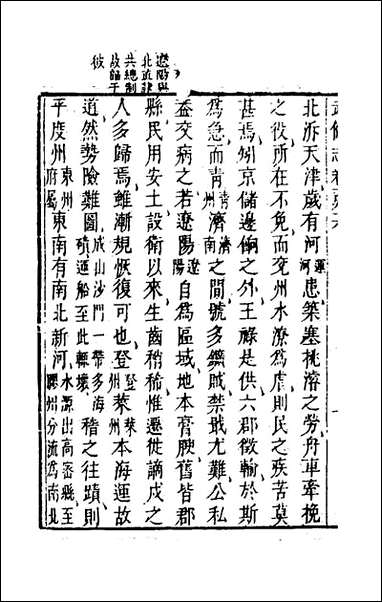 遼陽與
北直隸
共總制
故于
彼
武備志卷
北泝天津歲有河運河患築塞挑濬之勞舟車牽挽
之役所在不免而兗州水潦為虐則民之疾苦莫
甚焉矧京儲邊餉之外王祿是供六郡徵輸於斯
為急而青青州濟濟南之間號多鑛賊禁戢尤難公私
益交病之若遼陽遼陽自為區域地本膏腴舊皆郡
縣民用安土設衛以來生齒稍稀惟遷徙謫戍之
人多歸焉雖漸規恢復可也登登州萊萊州本海運故
道然勢險難圖成山沙門一帶多海磧運船至此輒壞稽之往蹟則
平度州東州府屬東南有南北新河水源出高密縣至膠州分流為南北